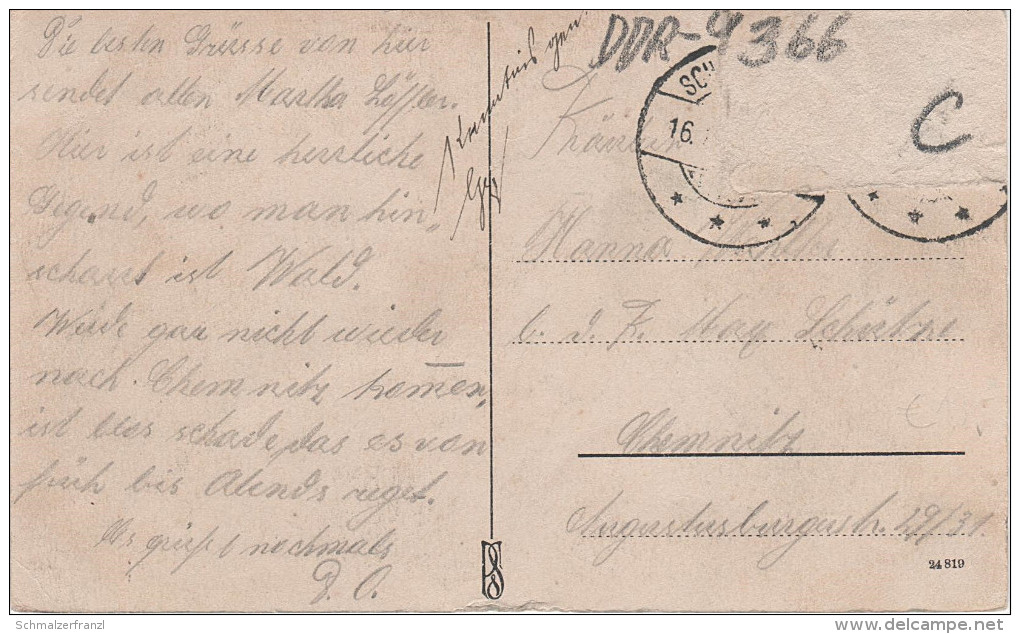 Die besten Grüsse von hier
sendet allen Martha Löffler.
Hier ist eine herrliche
Gegend, wo man hin
schaut ist Wald.
Würde gar nicht wieder
nach Chemnitz kommen,
ist blos schade das es von
früh bis Abends regnet.
Es grüßt nochmals
D. O.
Kenntnis gen.
DDR-9366
C
SCH
16.
Fräulein
Hanna
b. d. F. May
Chemnitz
Augustusburgerstr. 29/31
24 819
Schmalzerfranzl
delcampe.net